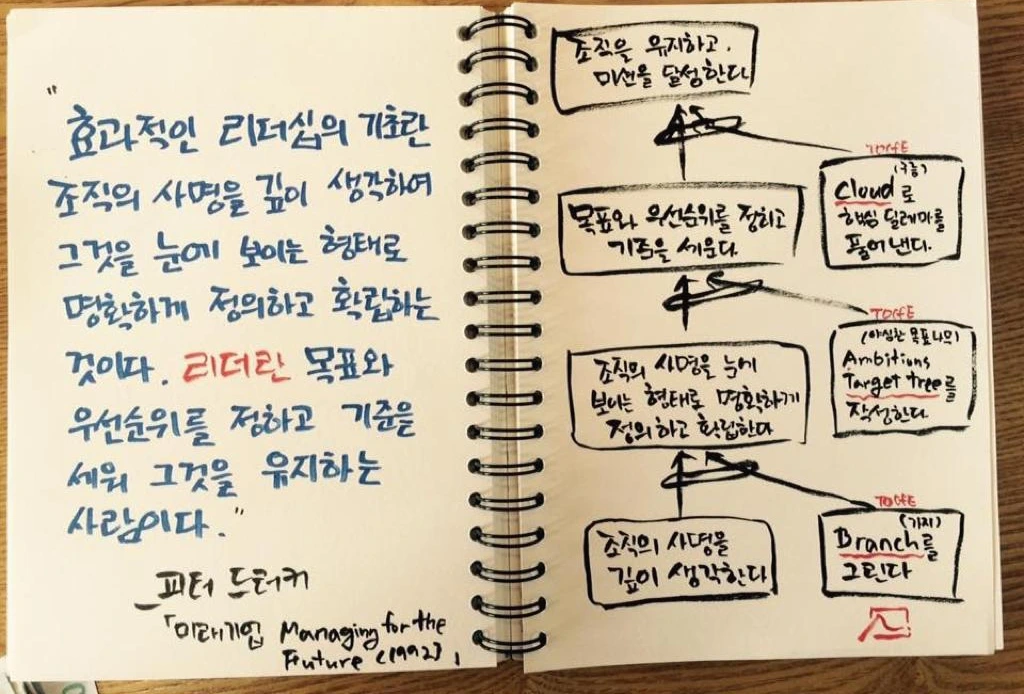 "
효과적인 리더십의 기초란
조직의 사명을 깊이 생각하여
그것을 눈에 보이는 형태로
명확하게 정의하고 확립하는
것이다. 리더란 목표와
우선순위를 정하고 기준을
세워 그것을 유지하는
사람이다."
_피터 드러커
「미래기업 Managing for the
Future (1992)」
조직을 유지하고,
미션을 달성한다.
TOCfE
(구름)
Cloud로
핵심 딜레마를
풀어낸다.
목표와 우선순위를 정하고
기준을 세운다.
TOCfE
(야심찬 목표나무)
Ambitions
Target tree를
작성한다.
조직의 사명을 눈에
보이는 형태로 명확하게
정의하고 확립한다
TOCfE
(가지)
Branch를
그린다
조직의 사명을
깊이 생각한다